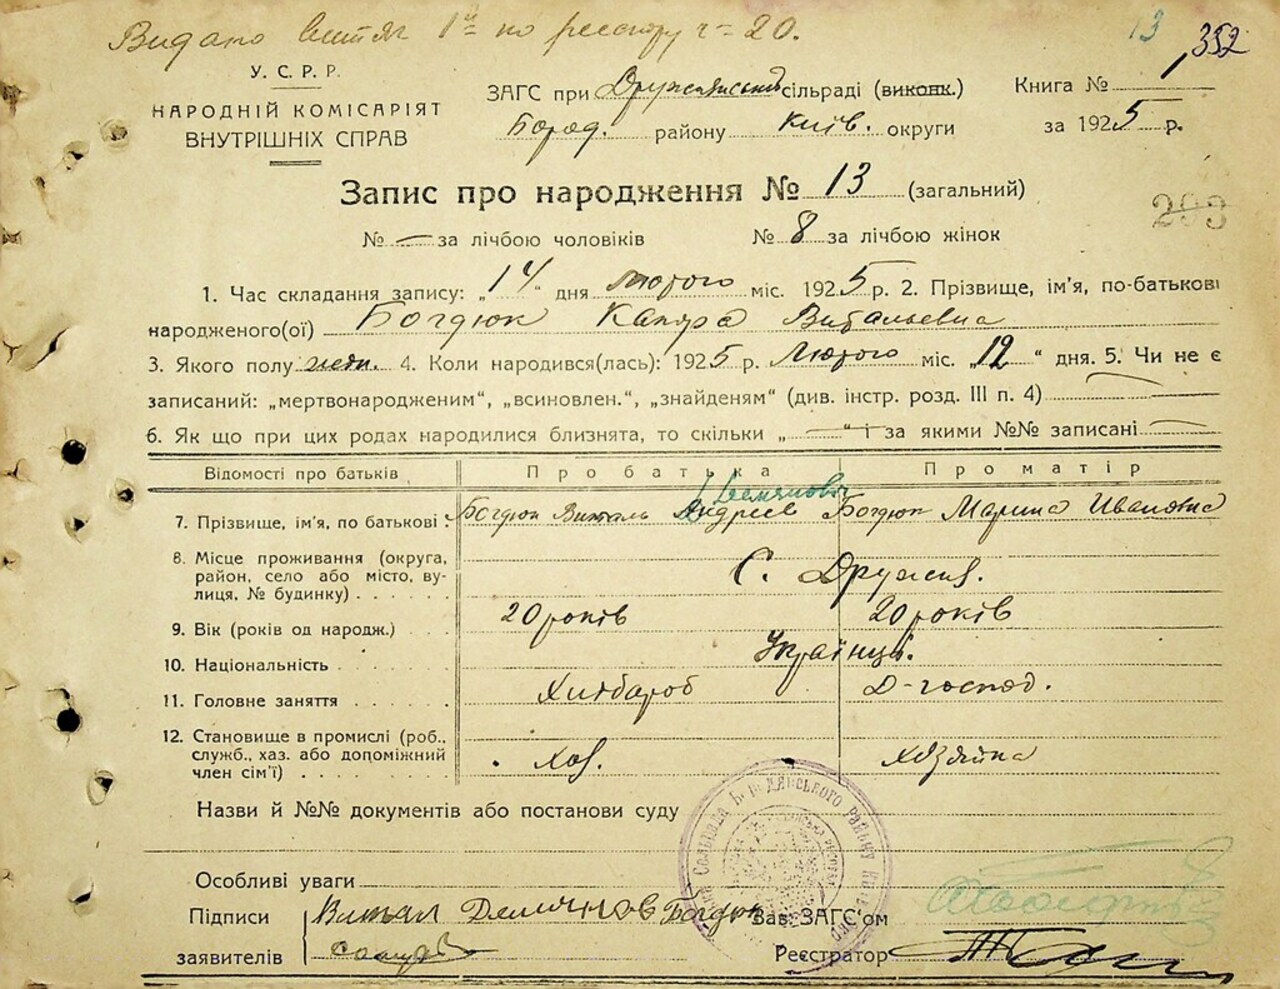 Видано витяг 1й по реєстру ч=20.
13 352
У. С. Р. Р.
НАРОДНІЙ КОМІСАРІЯТ
ВНУТРІШНІХ СПРАВ
ЗАГС при Дружнянській сільраді (виконк.) Книга № 1
Бород. району Київ. округи за 1925 р.
Запис про народження № 13 (загальний)
293
№ — за лічбою чоловіків № 8 за лічбою жінок
1. Час складання запису: „14“ дня лютого міс. 1925 р. 2. Прізвище, ім'я, по-батькові
народженого(ої) Богдюк Витальевна
3. Якого полу жен. 4. Коли народився(лась): 1925 р. Лютого міс. „12“ дня. 5. Чи не є
записаний: „мертвонародженим“, „всиновлен.“, „знайденям“ (див. інстр. розд. III п. 4) —
6. Як що при цих родах народилися близнята, то скільки „—“ і за якими №№ записані —
Відомості про батьків Про батька Про матір
Демянович
7. Прізвище, ім'я, по батькові: Богдюк Виталь Андреев Богдюк Марина Ивановна
8. Місце проживання (округа,
район, село або місто, ву-
лиця, № будинку) С. Дружня.
9. Вік (років од народж.) 20 років 20 років
10. Національність Українці.
11. Головне заняття Хлібароб Д-господ.
12. Становище в промислі (роб.,
служб., хаз. або допоміжний
член сім'ї) Хоз. Хозяйка
Назви й №№ документів або постанови суду
Особливі уваги
Підписи Витал Демянов Богдюк Зав. ЗАГС'ом
заявителів Реєстратор